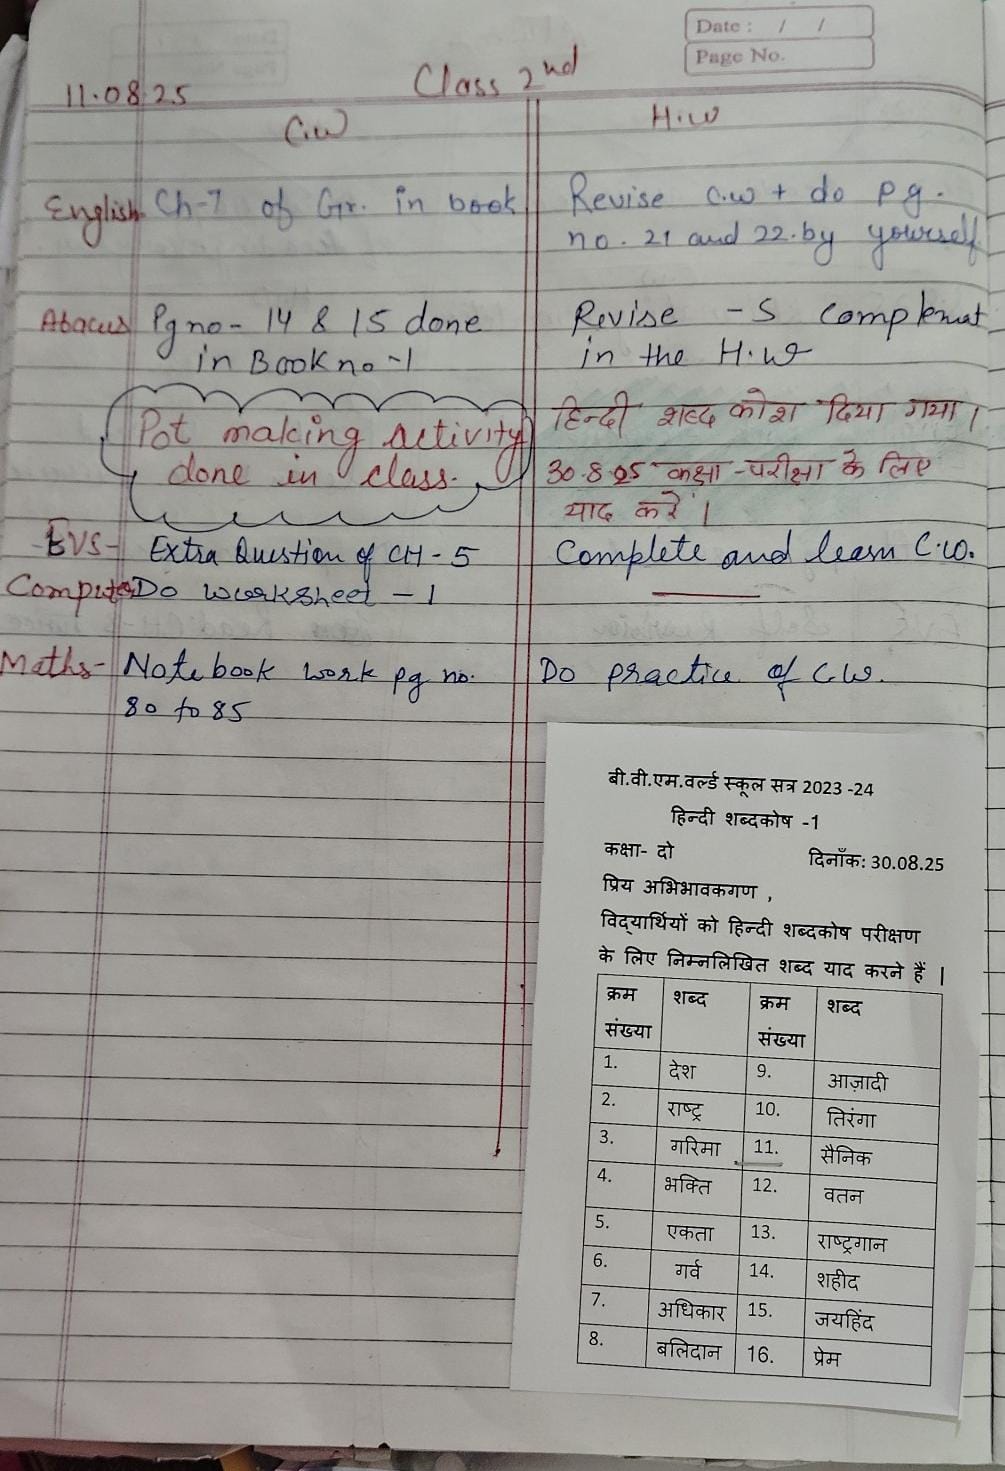 Date : / /
Page No.
11.08.25
Class 2nd
C.W
H.W
English Ch-7 of Gr. in book
Revise C.W + do pg.
no. 21 and 22. by yourself
Abacus Pg no - 14 & 15 done
in Book no -1
Revise - S Complemat
in the H.W
Pot making activity
done in class.
हिन्दी शब्द कोश दिया गया।
30.8.25 कक्षा -परीक्षा के लिए
याद करें।
EVS- Extra Question of CH - 5
Complete and learn C.W.
Computer Do worksheet - 1
Maths- Notebook work pg no.
80 to 85
Do practice of C.W.
बी.वी.एम.वर्ल्ड स्कूल सत्र 2023 -24
हिन्दी शब्दकोष -1
कक्षा- दो दिनाँक: 30.08.25
प्रिय अभिभावकगण ,
विद्यार्थियों को हिन्दी शब्दकोष परीक्षण
के लिए निम्नलिखित शब्द याद करने हैं |
क्रम संख्या शब्द क्रम संख्या शब्द
1. देश 9. आज़ादी
2. राष्ट्र 10. तिरंगा
3. गरिमा 11. सैनिक
4. भक्ति 12. वतन
5. एकता 13. राष्ट्रगान
6. गर्व 14. शहीद
7. अधिकार 15. जयहिंद
8. बलिदान 16. प्रेम